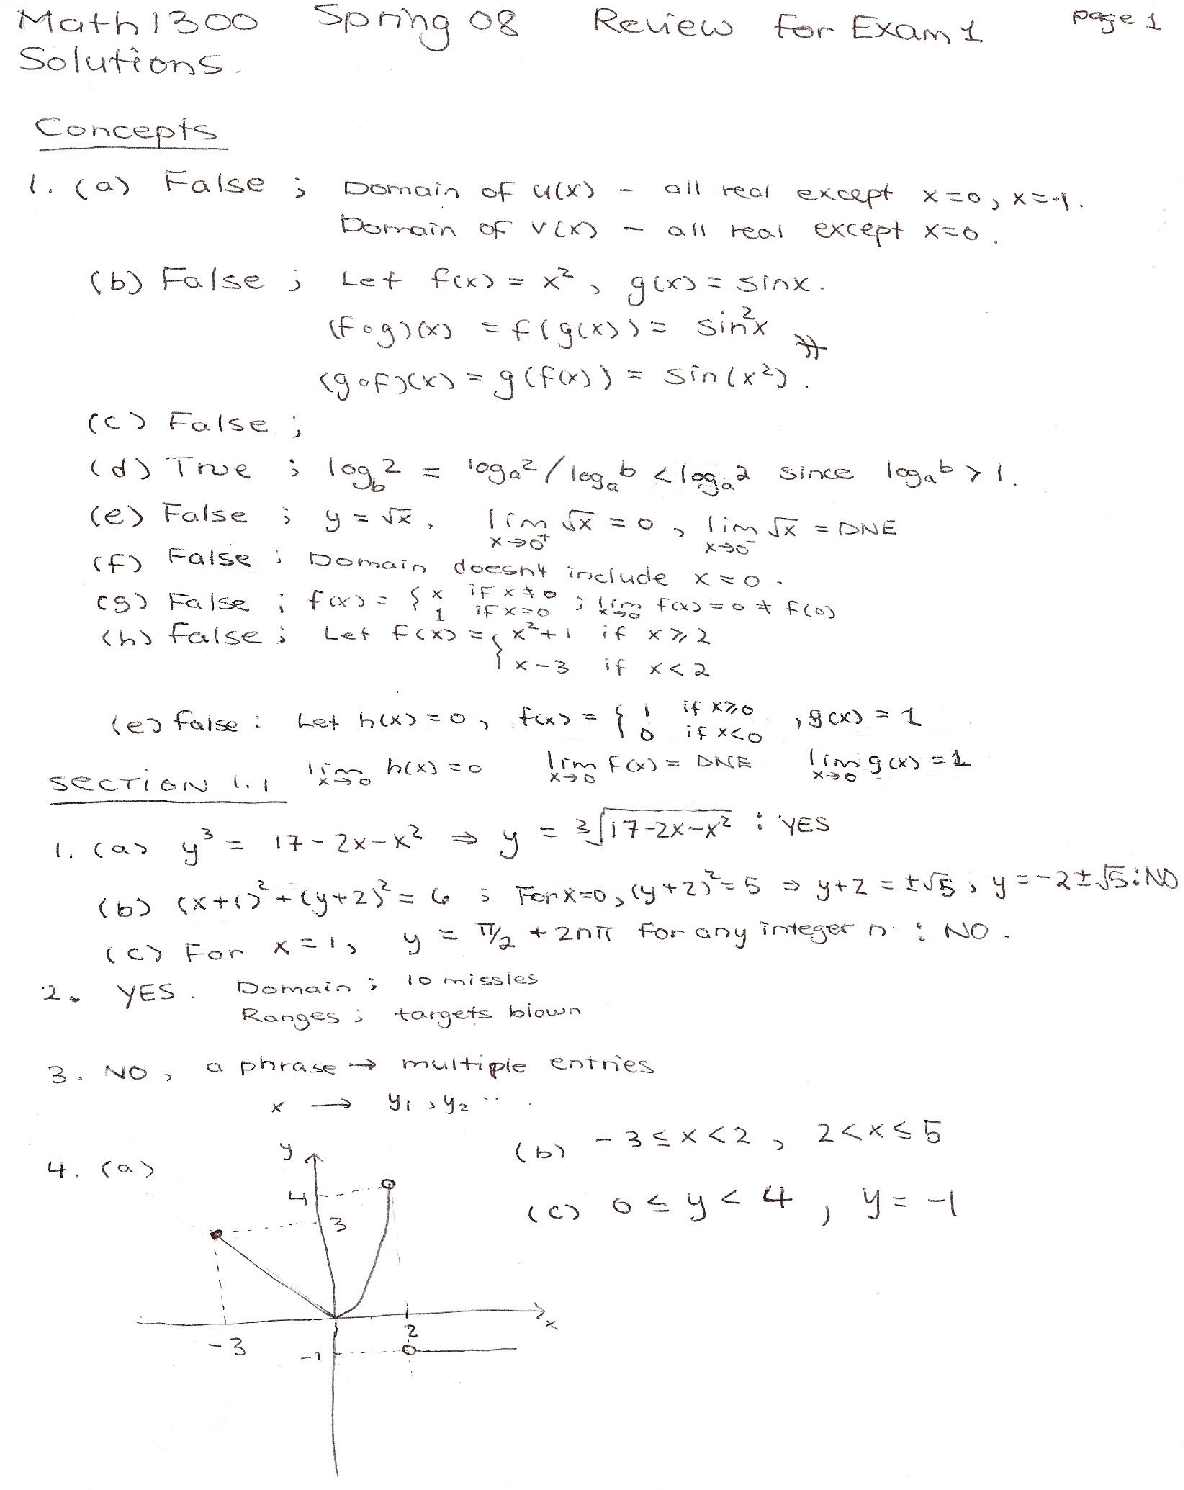 Math 1300 Spring 08 Review for Exam 1 page 1
Solutions.
Concepts
1. (a) False ; Domain of u(x) - all real except x=0, x=-1.
Domain of v(x) - all real except x=0.
(b) False ; Let f(x) = x², g(x) = sinx.
(f∘g)(x) = f(g(x)) = sin²x ≠
(g∘f)(x) = g(f(x)) = sin(x²).
(c) False ;
(d) True ; log_b 2 = log_a 2 / log_a b < log_a 2 since log_a b > 1.
(e) False ; y = √x, lim x→0⁺ √x = 0, lim x→0⁻ √x = DNE
(f) False ; Domain doesnt include x = 0.
(g) False ; f(x) = { x if x≠0 ; lim x→0 f(x) = 0 ≠ f(0)
1 if x=0
(h) false ; Let f(x) = { x²+1 if x ≥ 2
x-3 if x < 2
(e) false : Let h(x) = 0, f(x) = { 1 if x≥0 , g(x) = 1
0 if x<0
lim x→0 h(x) = 0 lim x→0 f(x) = DNE lim x→0 g(x) = 1
SECTION 1.1
1. (a) y³ = 17-2x-x² ⇒ y = ³√17-2x-x² : YES
(b) (x+1)²+(y+2)² = 6 ; For x=0, (y+2)² = 5 ⇒ y+2 = ±√5, y = -2±√5 : NO
(c) For x = 1, y = π/2 + 2nπ for any integer n : NO.
2. YES. Domain ; 10 missles
Ranges ; targets blown
3. NO, a phrase → multiple entries
x → y₁, y₂ ...
4. (a)
(b) -3 ≤ x < 2, 2 < x ≤ 5
(c) 0 ≤ y < 4, y = -1
y
4
3
x
-3
2
-1